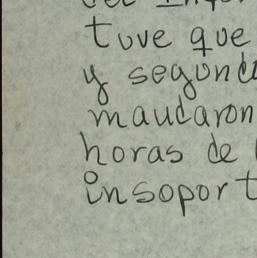 tuve que
y segund
maudaron
horas de
insoport